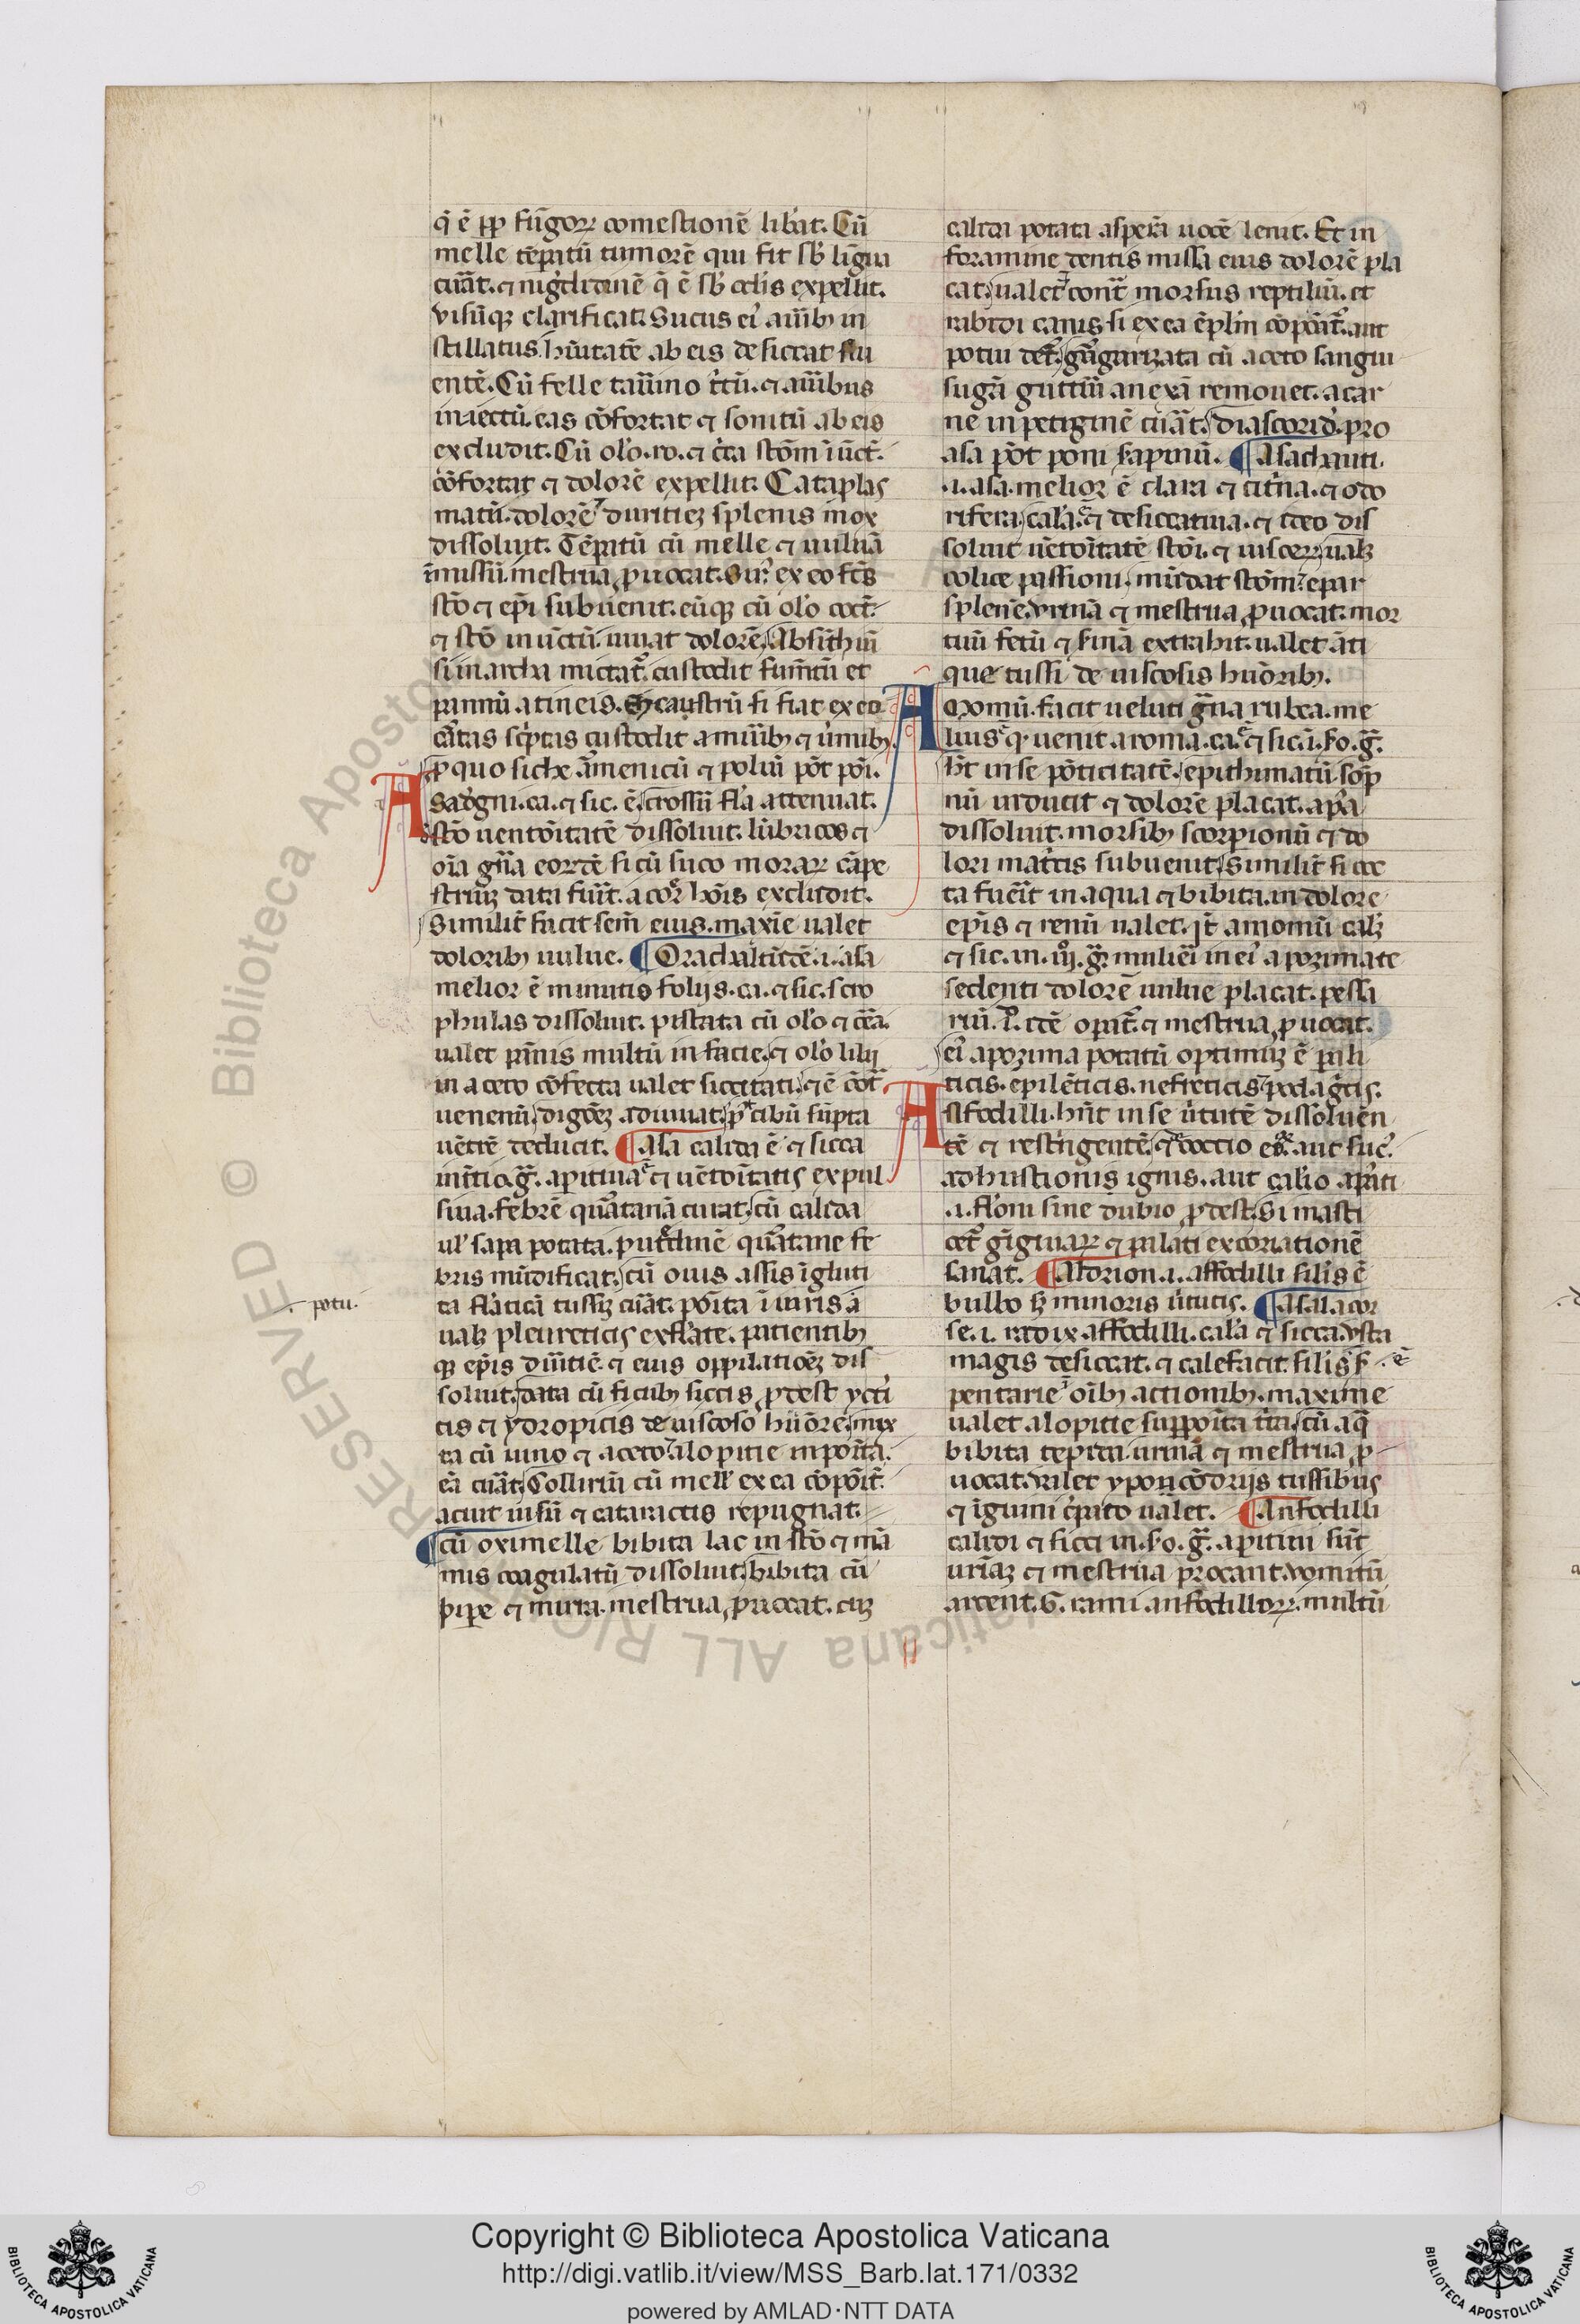 q̇ ē ꝓp fūgoꝝ comestionē lib̾at. Cū
melle tēꝑatū tumorē qui fit sb̾ ligua
curāt. ⁊ nigdꝛinē q̄ ē sb̾ oclis expellit.
visūqꝫ clarificat. Sucus eiꝰ auribꝫ in
stillatus. hūitatē ab eis desiccat flu
entē. Cū felle taurino t̾tū. ⁊ auribus
iniectū. eas cōfortat ⁊ sonitū ab eis
excludit. Cū olo. ro. ⁊ cēra stōm iūct̾.
cōfortat ⁊ dolorē expellit. Cataplas
matū. dolorē ⁊ duritieꝫ splenis mox
dissoluit. Tēꝑatū cū melle ⁊ uuluā
īmissū mestrua ꝓuocat. Sir̾ ex eo fc̄s
stō ⁊ epi̾ subuenit. eūqꝫ cū olo coct̾.
⁊ stō inūctū iuuat dolorē. Absīthiū
si in archa mictat̾. custodit fumtū et
pannū a tineis. Encaustrū si fiat ex eo
cartas sc̾ptas custodit a muribꝫ ⁊ u̾mibꝫ.
ꝓ quo siche am̄enicū ⁊ poliū pōt poī.
Asarogni. ca. ⁊ sic. ē. grossū fla attenuat.
stō uentōitatē dissoluit. lūbricos ⁊
oīa gn̄a eorūdē si cū suco moraꝝ cāpe
striuꝫ data fuīt. a cor̾ hoīs excludit.
Similit̾ facit sem̄ eius. maxīe ualet
doloribꝫ uulue. ¶ Orachaltidē. i. asa
melior ē minutis folijs. ca. ⁊ sic. scro
phulas dissoluit. pistata cū olo ⁊ cēa.
ualet pānis multū in facie. ⁊ olo lilij
in aceto cōfecta ualet siccitati. ⁊ ē cōt̾
uenenū. digōeꝫ adiuuat. p̾ cibū sūpta
uētrē deducit. ¶ Asa calida ē ⁊ sicca
in t̾cio. g̾. aꝑitiua ⁊ uētōitatis expul
siua. febrē quartanā curat. cū calida
ul̾ sapa potata. putdinē quartane fe
bris mūdificat. cū ouis assis īgluti
ta flaticā tussiꝫ curat. poīta ī uiris ā
ualꝫ pleureticis exflate. patientibꝫ
qꝫ epis duritiē. ⁊ eius oppilatioeꝫ dis
soluit. data cū ficubꝫ siccis ꝓdest yct̾i
cis ⁊ ydropicis de uiscoso humore. mix
ta cū uino ⁊ aceto. alopitie inpoīta.
eā curat. Colluriū cū mell̾ ex ea cōpōit̾.
acuit uisū ⁊ cataractis repugnat.
¶ cū oximelle bibita lac in stō ⁊ mā
mis coagulatū dissoluit. bibita cū
pipe ⁊ mirra. mestrua ꝓuocat. cuꝫ
. potu.
calida potata asperā uocē lenit. Et in
foramine dentis missa eius dolorē pla
cat. ualet ⁊ cont̾ morsus reptiliū. et
rabidi canis. si ex ea ēplm̄ cōponat̾. aut
potui det̾. gargarizata cū aceto sangui
sugā gutturi anexā remouet. a car
ne inpetiginē curāt. diascorid̾. pro
asa pōt poni sapinū. ¶ Asachauti.
.i. asa. melior ē clara ⁊ citr̾na. ⁊ odo
rifera. cala ⁊ desiccatiua. ⁊ ideo dis
soluit uētōitatē stoī. ⁊ uisceꝝ. ualꝫ
colice passioni. mūdat stōm ⁊ epar
splenē. vrinā ⁊ mestrua ꝓuocat. mor
tuū fetū ⁊ sinā extrahit. ualet āti
que tussi de uiscosis huōribꝫ.
Amomū. facit ueluti gn̄a rubea. me
lius ē q̾ uenit a roma. ca. ⁊ sic. ī. so. g̾.
h̄t in se pōticitatē. epithimatū. sōp
nū inducit ⁊ dolorē placat. apa
dissoluit. morsibꝫ scorpionū ⁊ do
lori mat̾cis subuenit. Similit̾ si coc
ta fuerit in aqua ⁊ bibita. in dolore
epis ⁊ renū ualet. It̾ amomū calꝫ
⁊ sic. in. iij. g̾. mulieri in eiꝰ apozimate
sedenti dolorē uulue placat. pessa
riū. i̾. idē oꝑat̾. ⁊ mestrua ꝓuocat.
eiꝰ apozima potatū optimuꝫ ē pali
ticis. epilēticis. nefreticis ⁊ podagricis.
Afodilli. hn̄t in se u̾tutē dissoluēn
tē ⁊ rest̾ngentē. ⁊ decoctio eoꝝ. aut suc̾.
adhustionis ignis. aut calio aꝑati
.i. floni sine dubio ꝓdest. Si masti
cet̾ gīgiuaꝝ ⁊ palati excoriationē
sanat. ¶ Aldrion. i. affodilli silis ē
bulbo sꝫ minoris u̾tutis. ¶ Asalacor
se. i. radix affodilli. cala ⁊ sicca. vsta
magis desiccat. ⁊ calefacit. silis s̾
pentarie ī oībꝫ actionibꝫ. maxime
ualet alopitie suppoīta t̾ita. cū aq̄
bibita tepida. urinā ⁊ mestrua ꝓ
uocat. valet ypocōdrijs tussibus
⁊ īguini c̾pato ualet. ¶ Anfodilli
calidi ⁊ sicci in. so. g̾. aꝑitiui sūt
urinaꝫ ⁊ mestrua procant. vomitū
arcent. G. rami anfodilloꝝ. multū
. ē
Copyright © Biblioteca Apostolica Vaticana
http://digi.vatlib.it/view/MSS_Barb.lat.171/0332
powered by AMLAD·NTT DATA
BIBLIOTECA APOSTOLICA VATICANA
BIBLIOTECA APOSTOLICA VATICANA